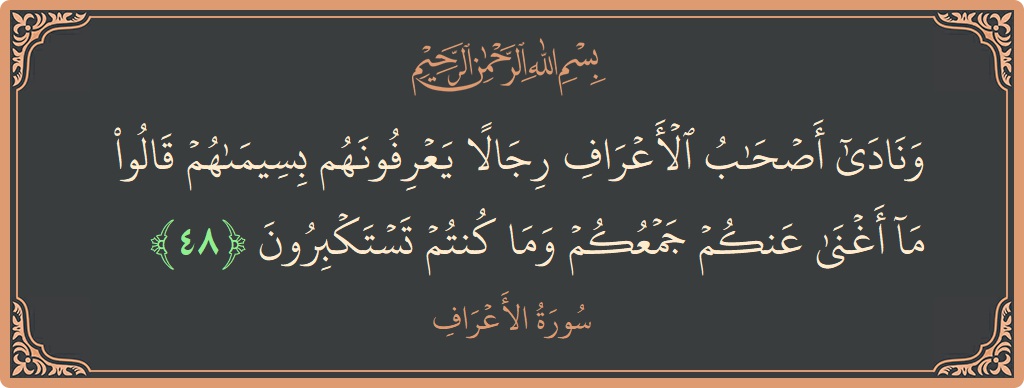 بِسْمِ اللَّهِ الرَّحْمَٰنِ الرَّحِيمِ
وَنَادَىٰٓ أَصْحَـٰبُ ٱلْأَعْرَافِ رِجَالًا يَعْرِفُونَهُم بِسِيمَىٰهُمْ قَالُوا۟
مَآ أَغْنَىٰ عَنكُمْ جَمْعُكُمْ وَمَا كُنتُمْ تَسْتَكْبِرُونَ ﴿٤٨﴾
سُورَةُ الأَعْرَافِ